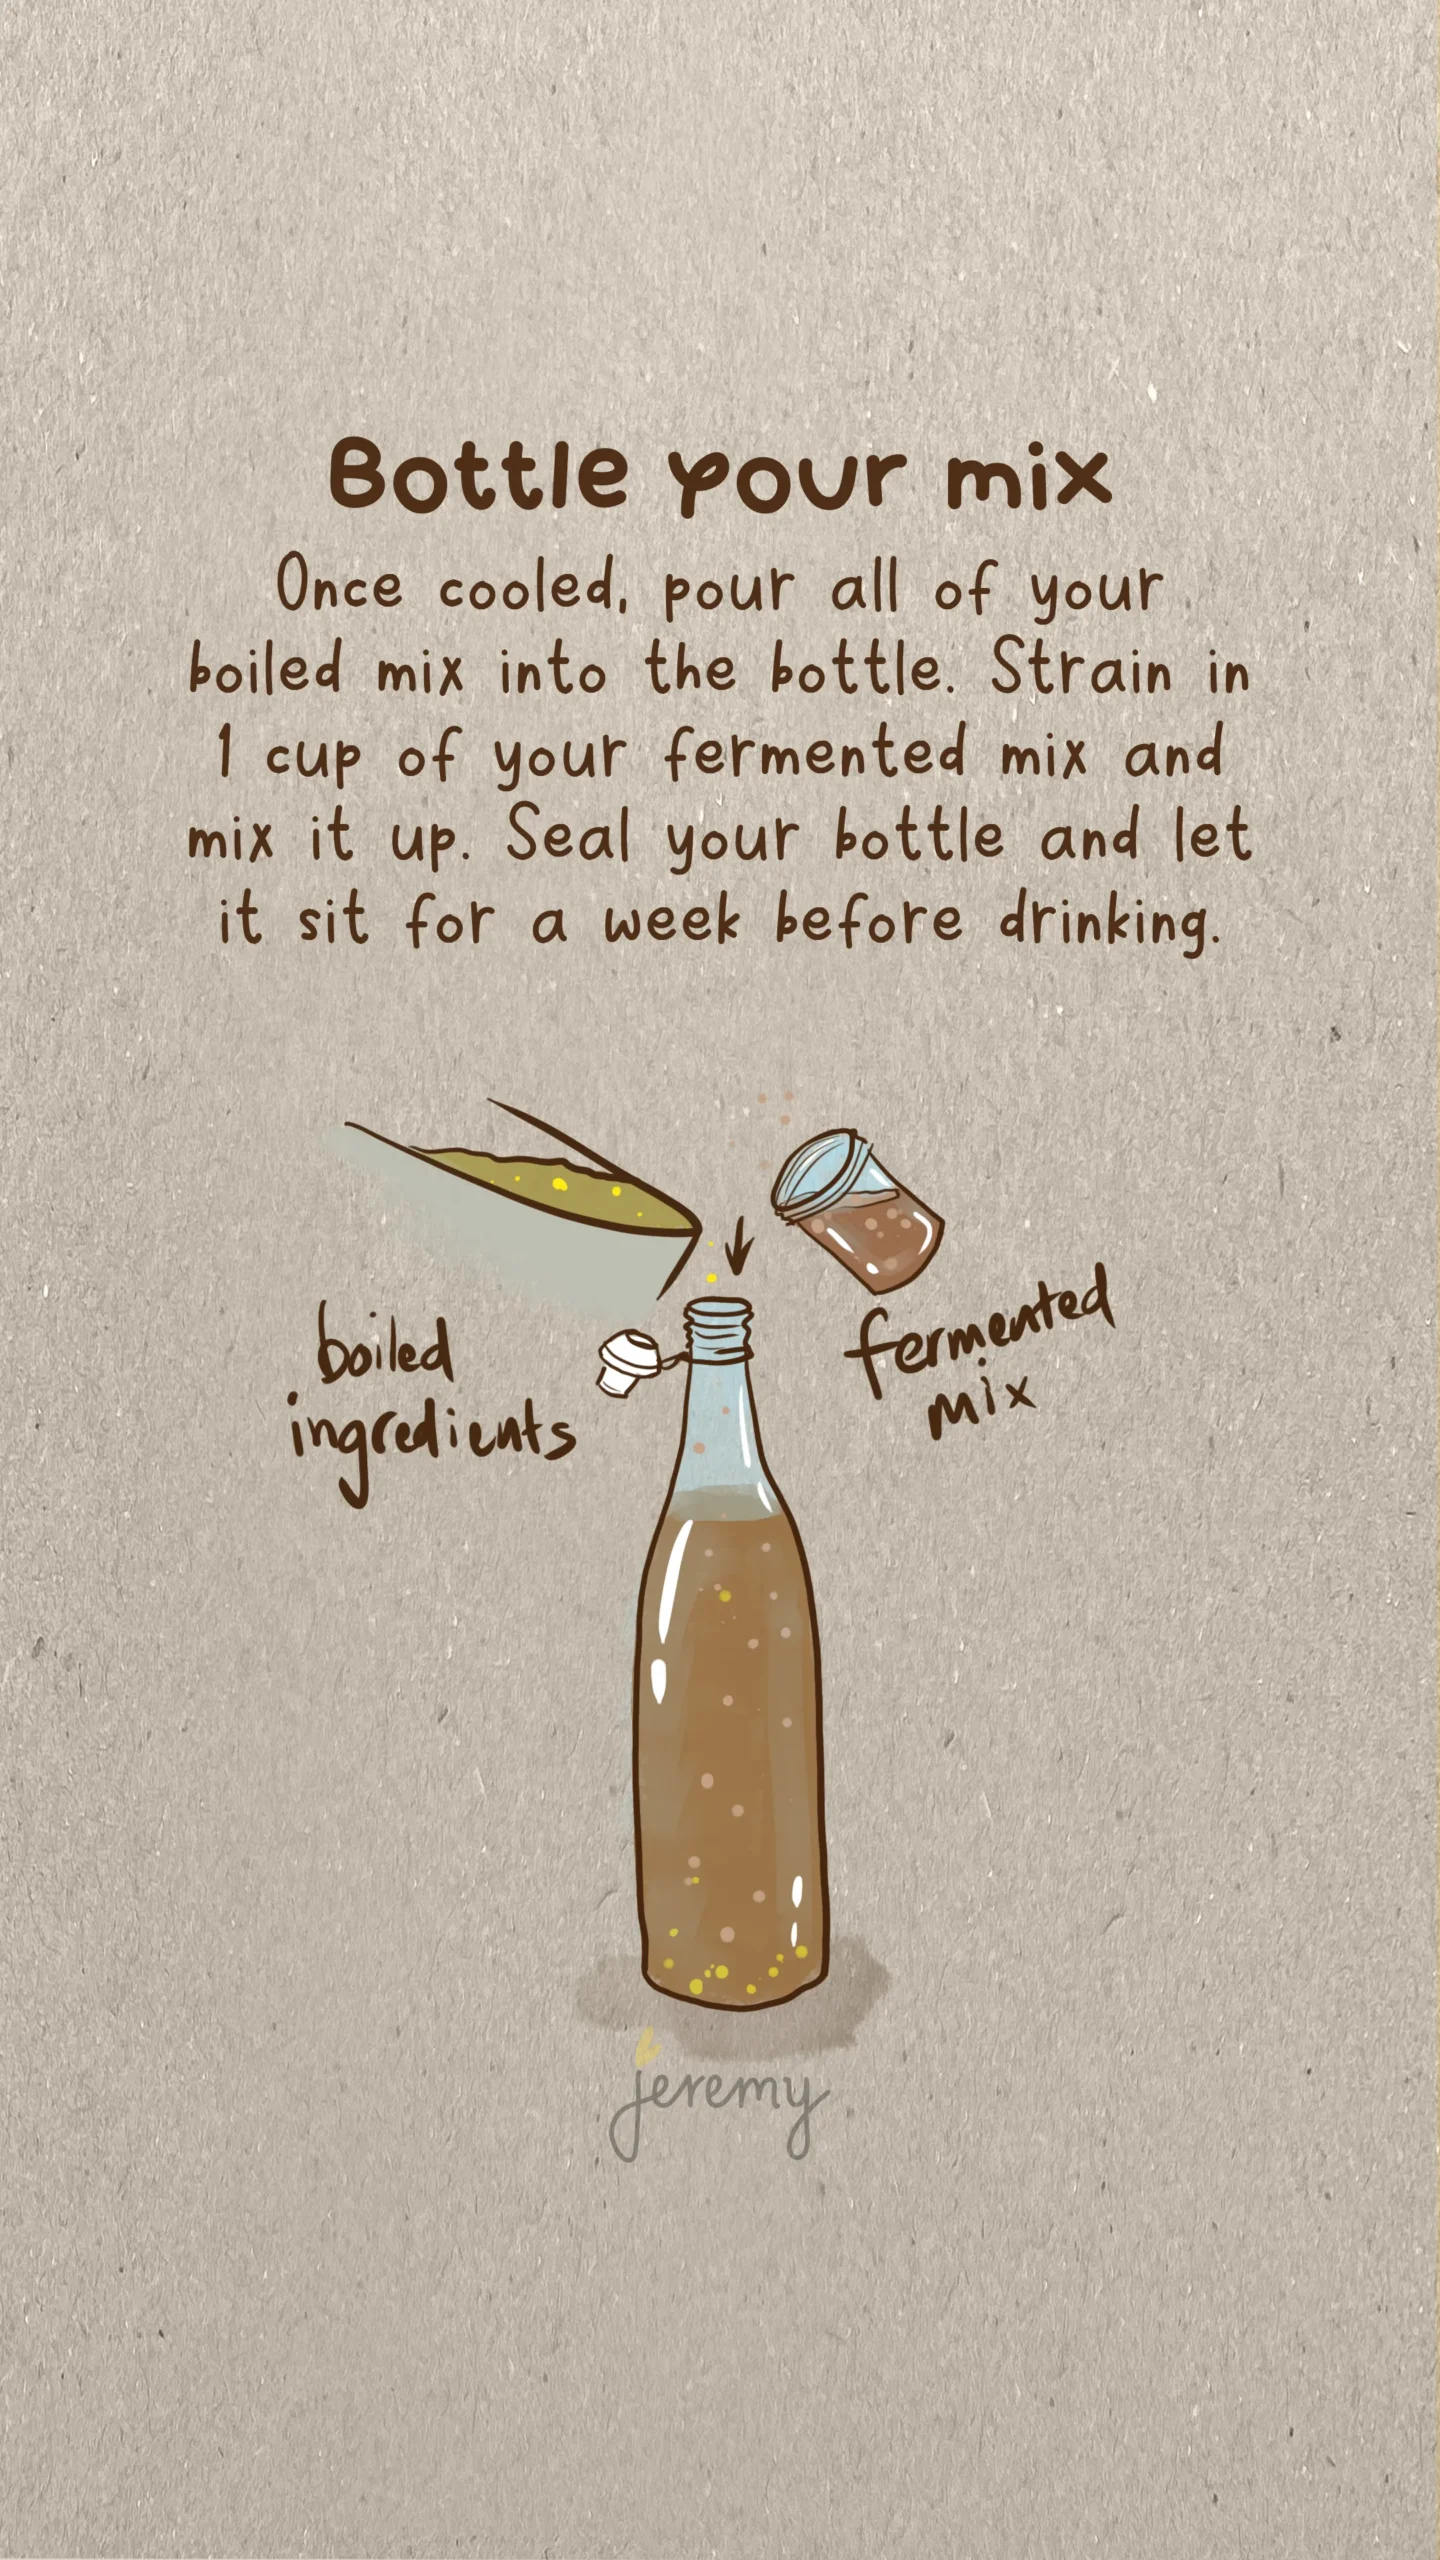 Bottle your mix
Once cooled, pour all of your
boiled mix into the bottle. Strain in
1 cup of your fermented mix and
mix it up. Seal your bottle and let
it sit for a week before drinking.
boiled
ingredients
fermented
mix
jeremy